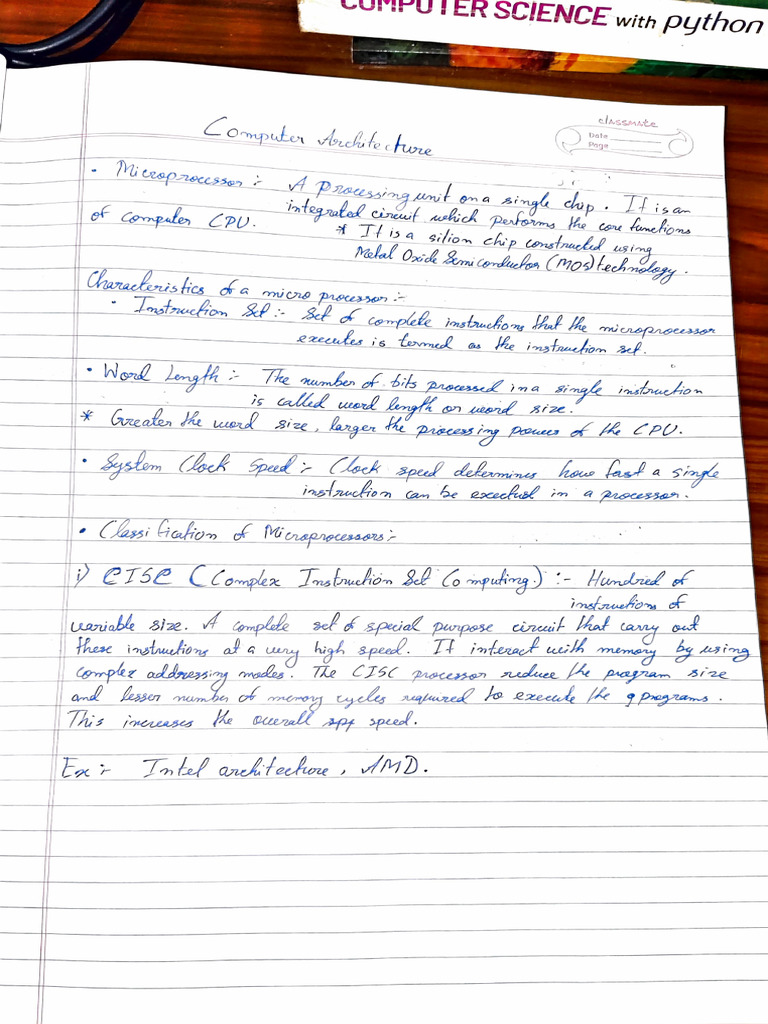 COMPUTER SCIENCE with python
classmate
Date
Page
Computer Architecture
• Microprocessor :- A processing unit on a single chip. It is an
integrated circuit which performs the core functions
of computer CPU.
* It is a silion chip constructed using
Metal Oxide Semiconductor (MOS) technology.
Characteristics of a micro processor :-
• Instruction Set :- Set of complete instructions that the microprocessor
executes is termed as the instruction set.
• Word Length :- The number of bits processed in a single instruction
is called word length or word size.
* Greater the word size, larger the processing power of the CPU.
• System Clock Speed :- Clock speed determines how fast a single
instruction can be exectud in a processor.
• Classification of Microprocessors :-
i) CISC (Complex Instruction Set Computing.) :- Hundred of
instructions of
variable size. A complete set of special purpose circuit that carry out
these instructions at a very high speed. It interact with memory by using
complex addressing modes. The CISC processor reduce the program size
and lesser number of memory cycles required to execute the programs.
This increases the overall speed.
Ex :- Intel architecture, AMD.